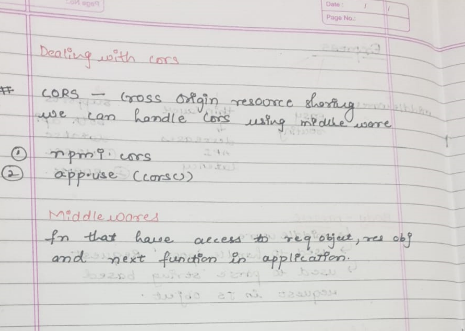 Date
Page No.:
Dealing with cors
# CORS — Cross Origin resource sharing
we can handle cors using middle ware
① npm i cors
② app.use (cors())
Middlewares
fn that have access to req object, res obj
and next function in application.